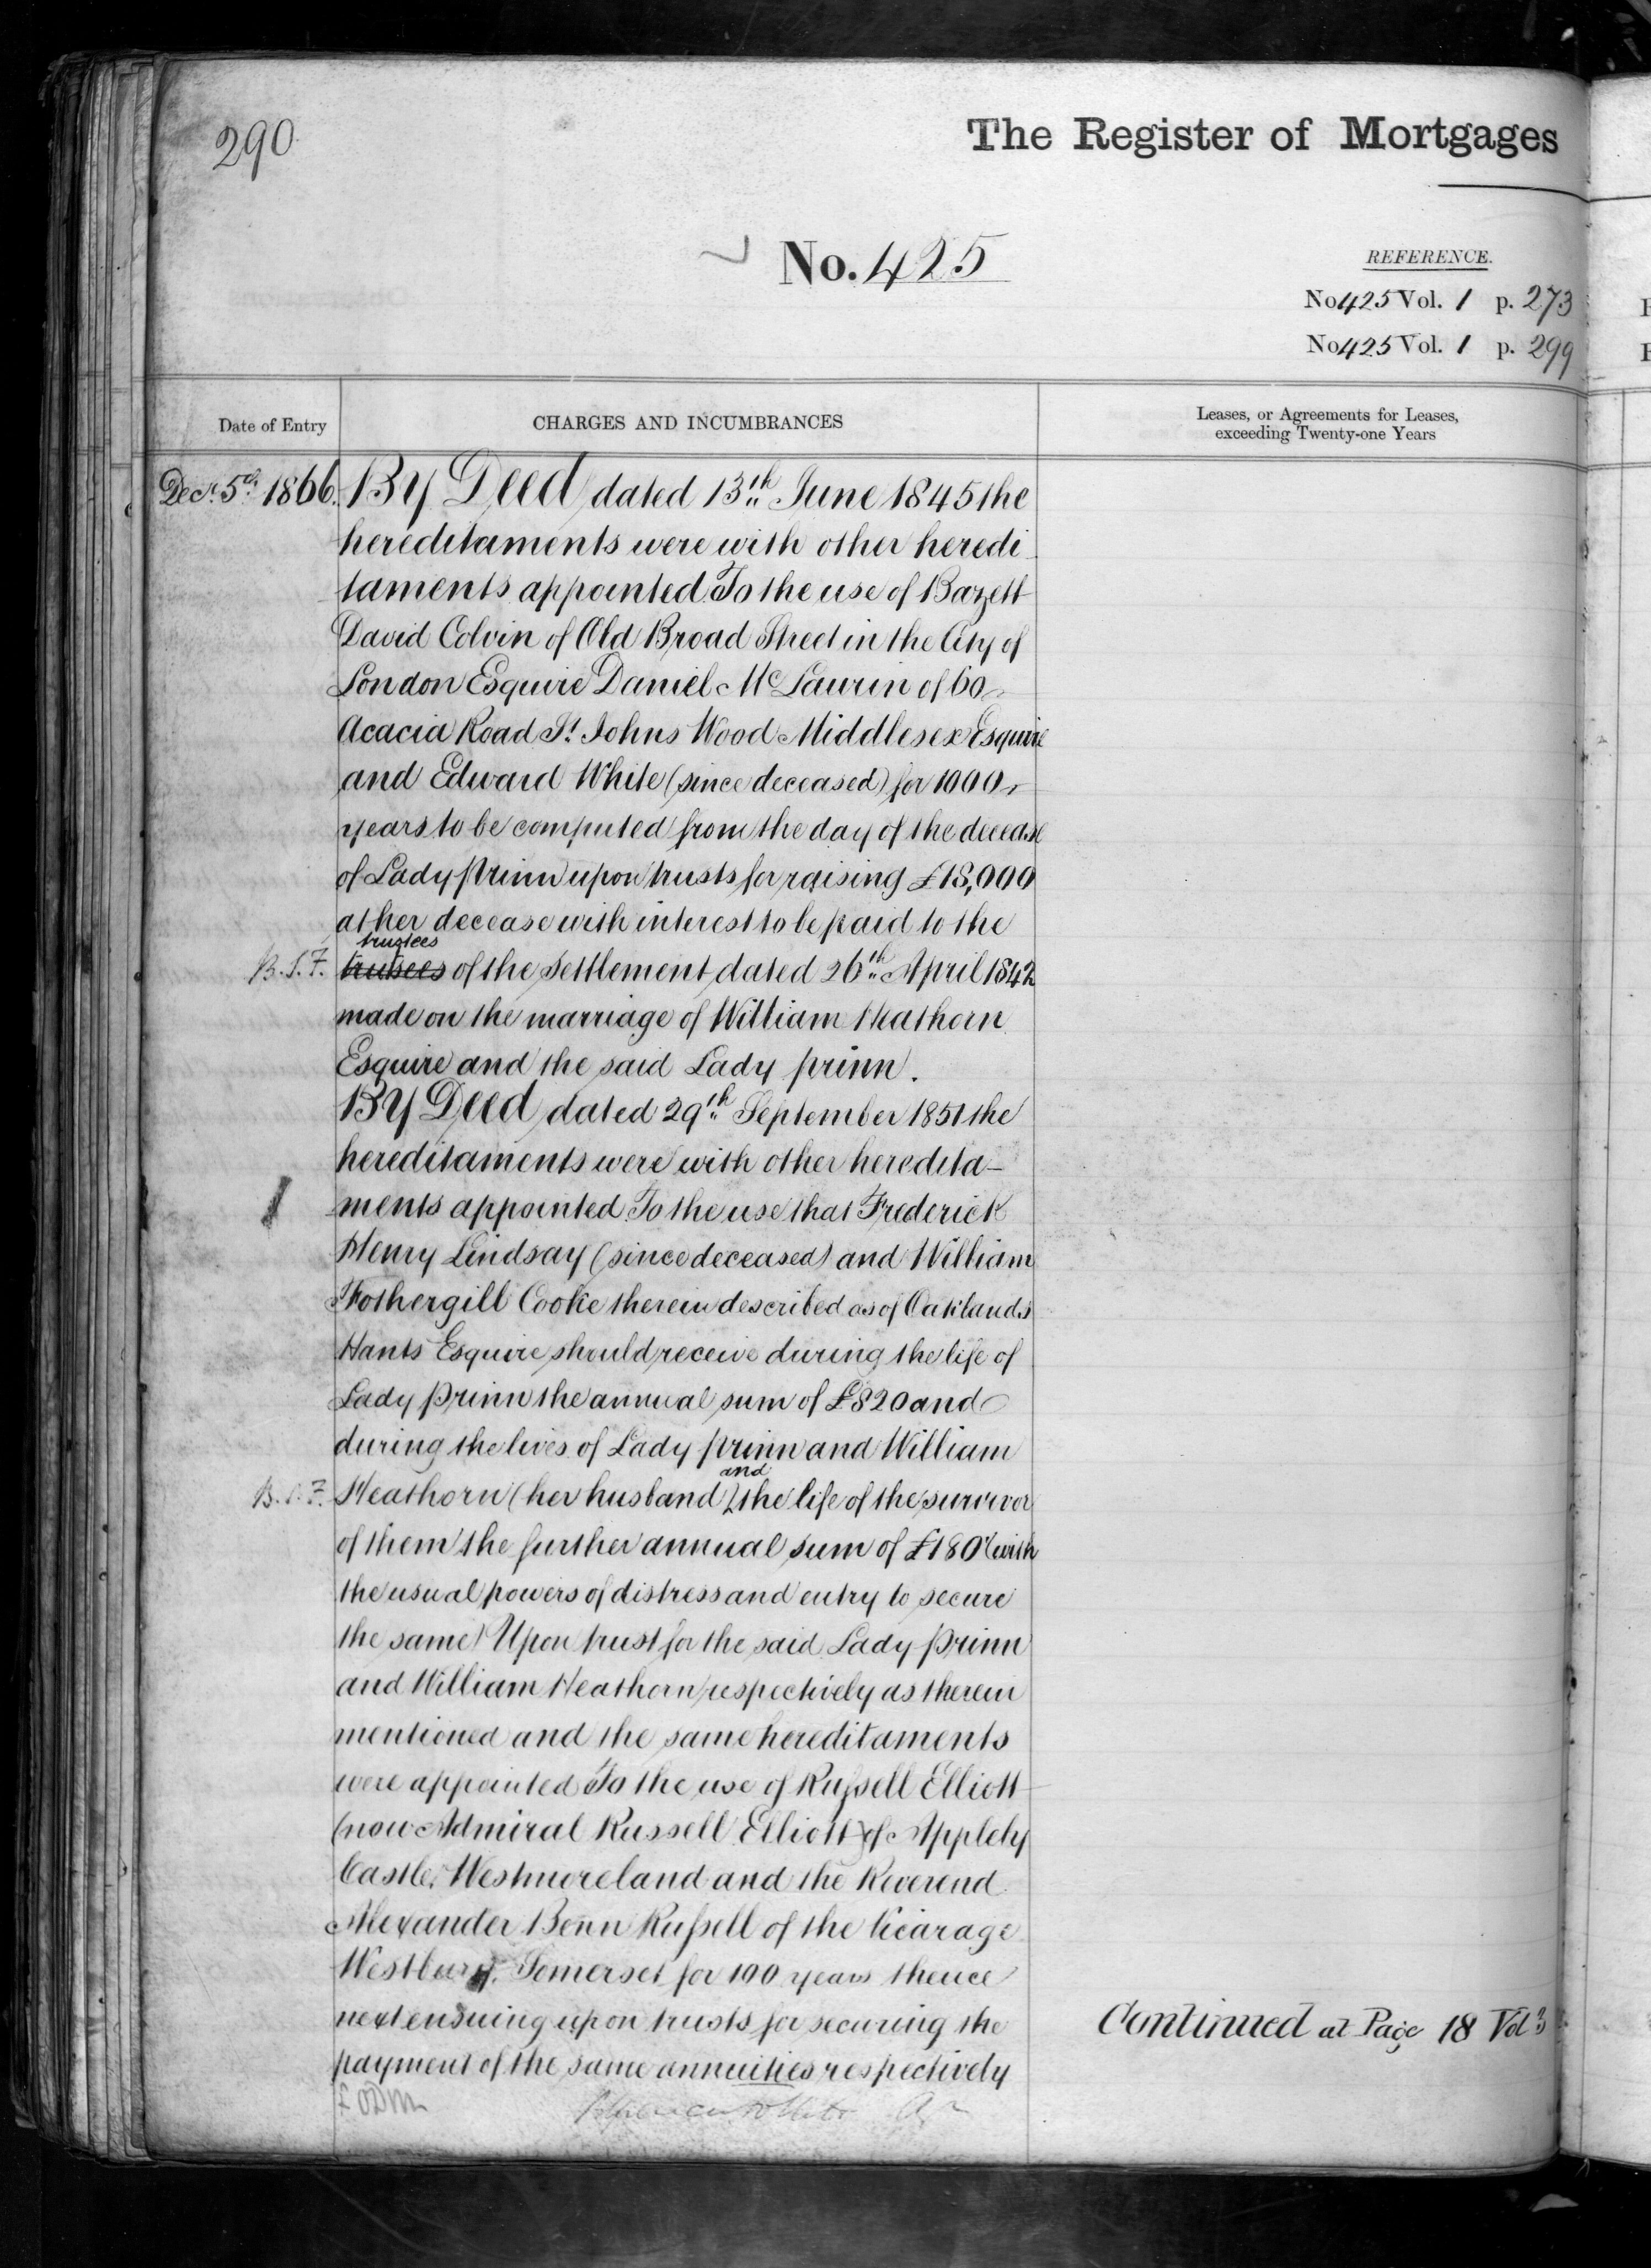 290
The Register of Mortgages
No. 425
REFERENCE.
No 425 Vol. 1 p. 273
No 425 Vol. 1 p. 299
Date of Entry
CHARGES AND INCUMBRANCES
Leases, or Agreements for Leases,
exceeding Twenty-one Years
Decr. 5th 1866. By Deed dated 13th June 1845 the
hereditaments were with other heredi
taments appointed To the use of Bazett
David Colvin of Old Broad Street in the City of
London Esquire Daniel McLaurin of 60
Acacia Road St. Johns Wood Middlesex Esquire
and Edward White (since deceased) for 1000
years to be computed from the day of the decease
of Lady Prinn upon trusts for raising £18,000
at her decease with interest to be paid to the
trustees
B.S.F. trusees of the Settlement dated 26th April 1842
made on the marriage of William Heathorn
Esquire and the said Lady Prinn.
By Deed dated 29th September 1851 the
hereditaments were with other heredita-
ments appointed To the use that Frederick
Henry Lindsay (since deceased) and William
Fothergill Cooke therein described as of Oaklands
Hants Esquire should receive during the life of
Lady Prinn the annual sum of £820 and
during the lives of Lady Prinn and William
and
B.S.F. Heathorn (her husband) the life of the survivor
of them the further annual sum of £180 (with
the usual powers of distress and entry to secure
the same) Upon trust for the said Lady Prinn
and William Heathorn respectively as therein
mentioned and the same hereditaments
were appointed To the use of Russell Elliott
(now Admiral Russell Elliott) of Appleby
Castle, Westmoreland and the Reverend
Alexander Benn Russell of the Vicarage
Westbury, Somerset for 100 years thence
next ensuing upon trusts for securing the
payment of the same annuities respectively
Continued at Page 18 Vol 3